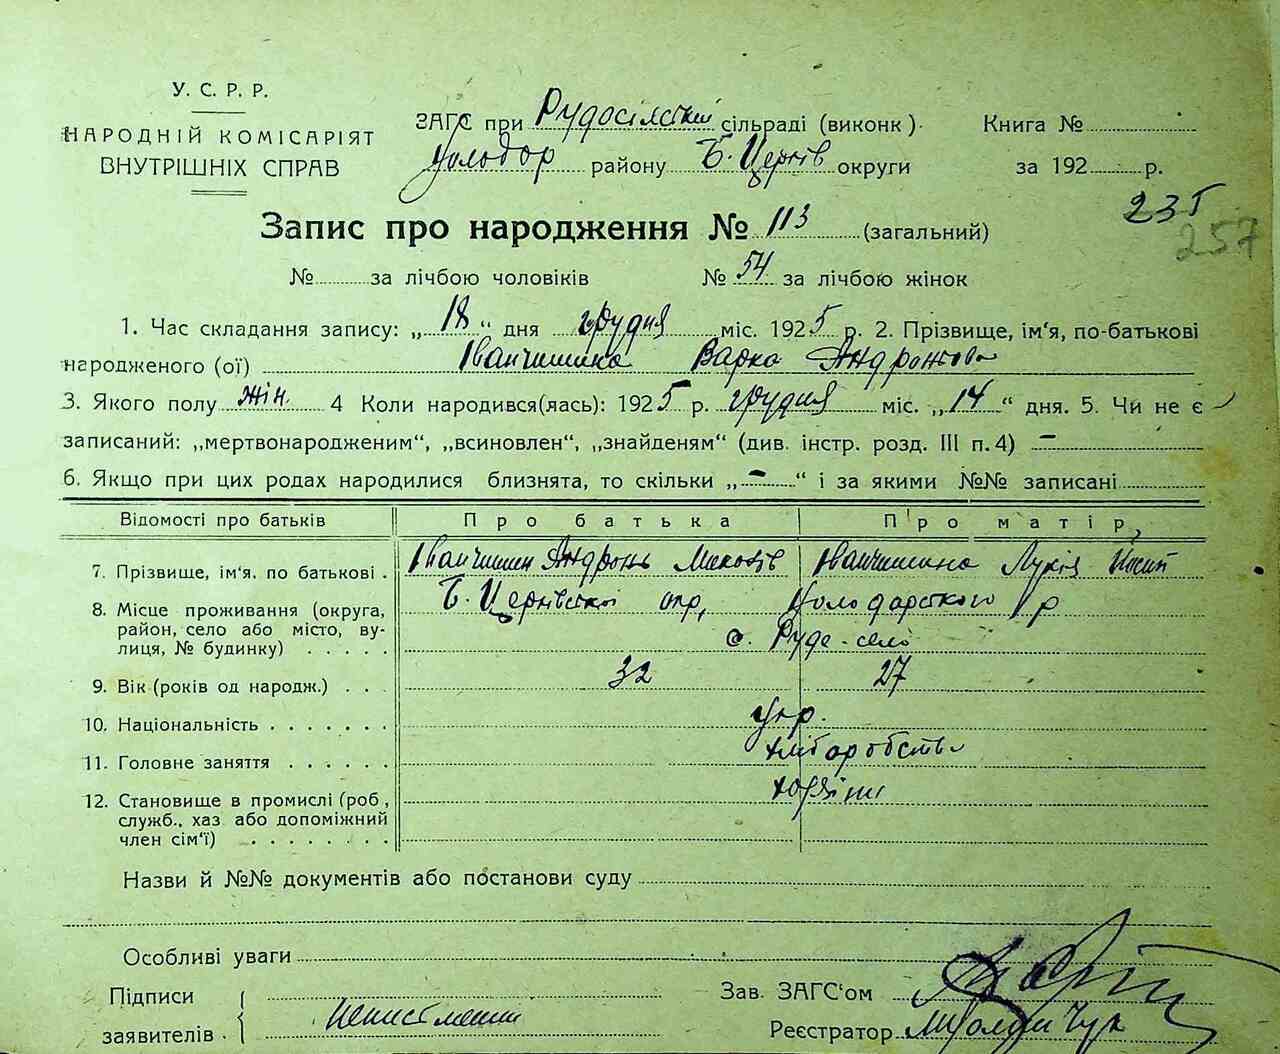 У. С. Р. Р.
НАРОДНІЙ КОМІСАРІЯТ
ВНУТРІШНІХ СПРАВ
ЗАГС при Рудосільській сільраді (виконк). Книга №
Володар району Б. Церків округи за 192 р.
235
257
Запис про народження № 113 (загальний)
№ за лічбою чоловіків № 54 за лічбою жінок
1. Час складання запису: „18“ дня грудня міс. 1925 р. 2. Прізвище, ім‘я, по-батькові
народженого (ої) Іванчишина Варка Андронова
3. Якого полу жін. 4 Коли народився(лась): 1925 р. грудня міс. „14“ дня. 5. Чи не є
записаний: „мертвонародженим“, „всиновлен“, „знайденям“ (див. інстр. розд. III п. 4) –
6. Якщо при цих родах народилися близнята, то скільки „–“ і за якими №№ записані
Відомості про батьків Про батька Про матір
7. Прізвище, ім‘я. по батькові . Іванчишин Андронь Іванчишина Лукія
8. Місце проживання (округа, Б. Церківської окр, Володарського р
район, село або місто, ву- с. Руде-село
лиця, № будинку) . . . . .
9. Вік (років од народж.) . . . 32 27
10. Національність . . . . . . . укр.
11. Головне заняття . . . . . . хліборобство
12. Становище в промислі (роб,
служб., хаз або допоміжний
член сім‘ї) . . . . . . . .
Назви й №№ документів або постанови суду
Особливі уваги
Підписи
заявителів . неписьменни
Зав. ЗАГС‘ом
Реєстратор